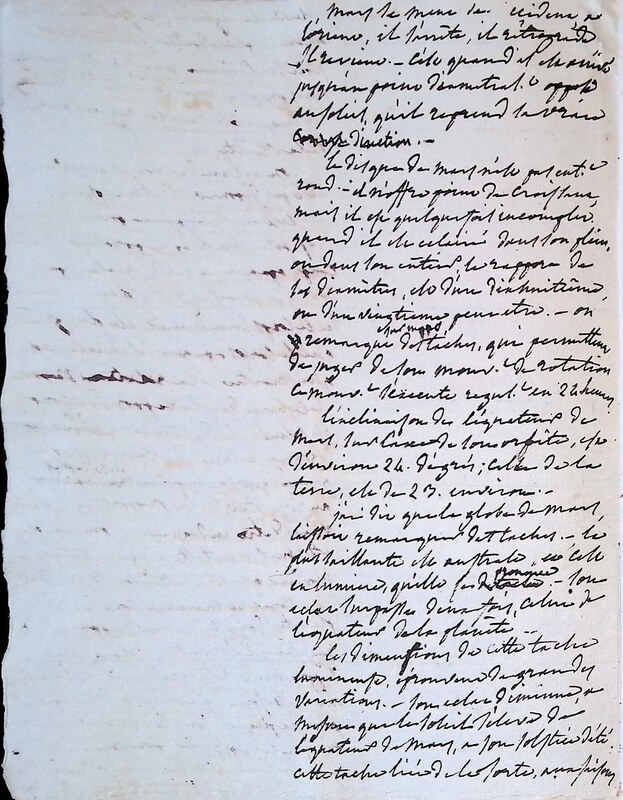 mars se meut de occident a
l'orient, il s'arrête, il rétrograde
il revient. - C'est quand il est arrivé
jusqu'au point diamétral.t opposé
au soleil, qu'il reprend la vraie
direction. -
le disque de mars n'est pas enti.t
rond. - il n'offre point de croissant,
mais il est quelquefois incomplet.
quand il est éclairé dans son plein,
ou dans son entier, le rapport de
ses diamètres, est d'un dixhuitième,
ou d'un vingtième peut etre. - on
remarque des taches, qui permettent
sur mars
de juger de son mouv.t de rotation
ce mouv.t s'exécute regul.t en 24 heures
l'inclinaison de l'équateur de
mars, sur l'axe de son orbite, est
d'environ 24. degrés; celle de la
terre, est de 23. environ. -
j'ai dit que le globe de mars,
laissoit remarquer des taches. - la
plus saillante est australe, et c'est
en lumiere, qu'elle se - son
éclat surpasse deux fois, celui de
l'équateur de la planète. -
les dimensions de cette tache
lumineuse, éprouvent de grandes
variations. - son éclat diminue, a
mesure que le soleil s'élève de
l'équateur de mars, a son solstice d'été.
cette tache de la sorte, aux